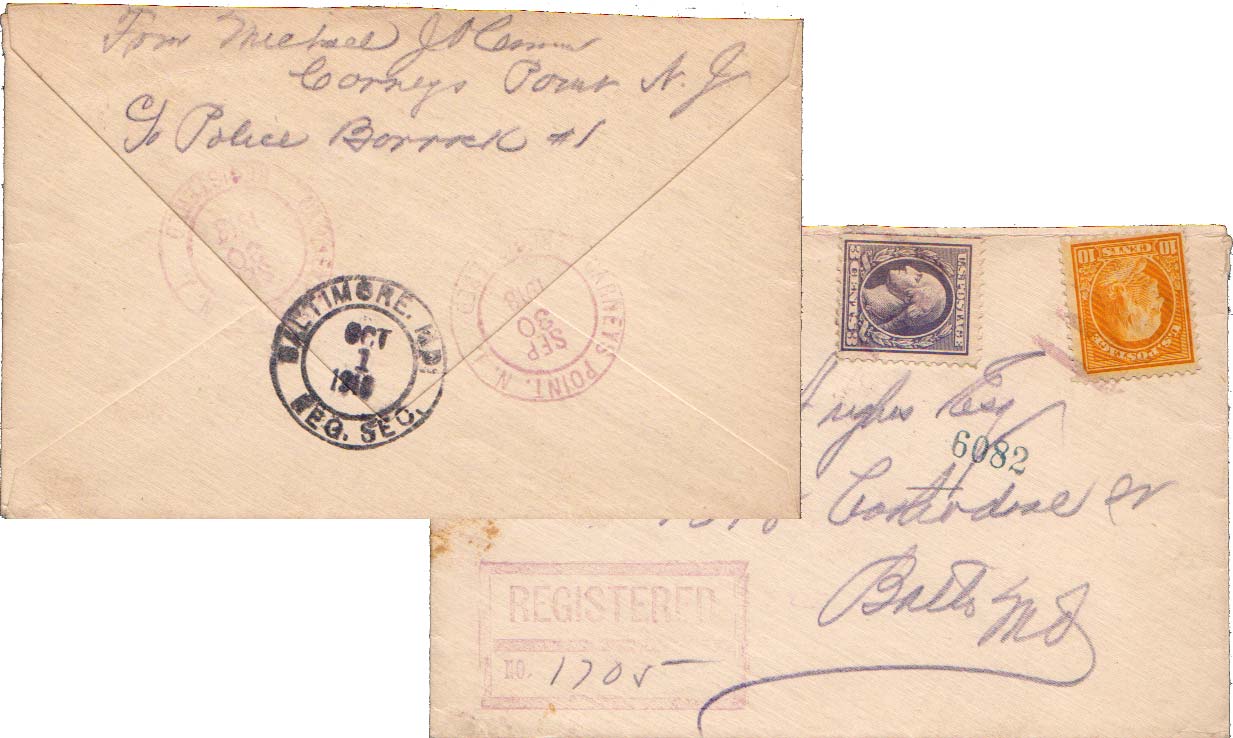 From Michael J
Corneys Point N. J
C/o Police Borrock #1
CARNEYS POINT. N. J. REGISTERED
SEP
30
1918
CARNEYS POINT. N. J. REGISTERED
SEP
30
1918
BALTIMORE, MD.
OCT
1
1918
REG. SEC.
U.S. POSTAGE
3 CENTS 3
U.S. POSTAGE
10 CENTS 10
Hughes Esq
6082
Balto Md
REGISTERED
NO. 1705